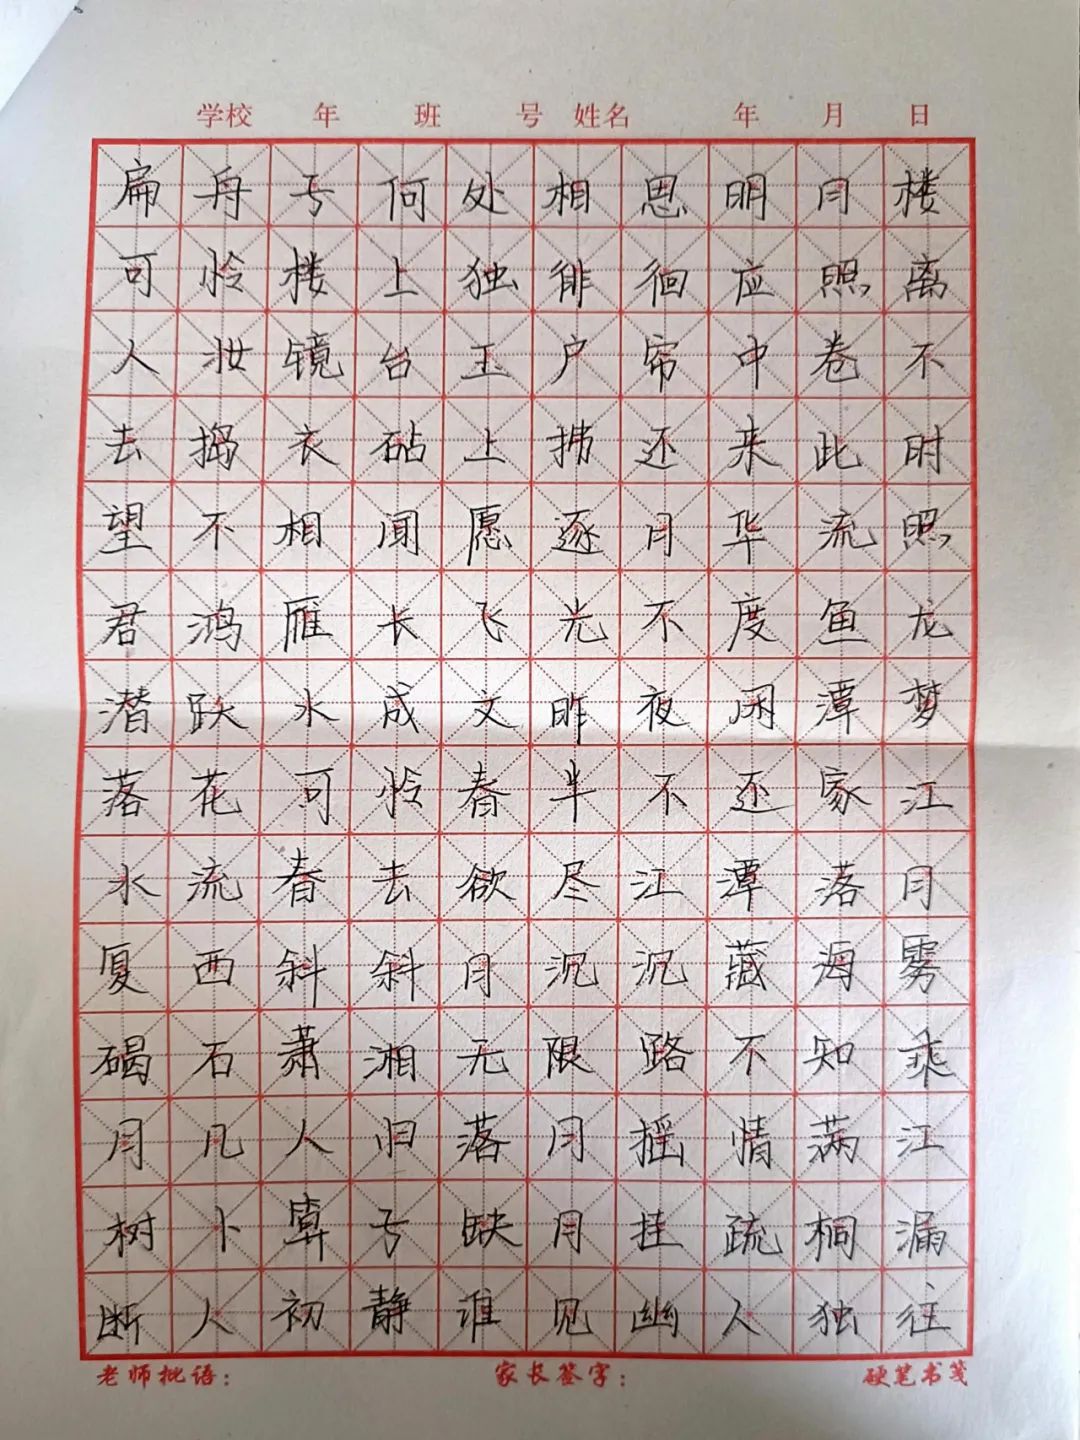 学校 年 班 号 姓名 年 月 日
扁舟亏何处相思明月楼
可怜楼上独徘徊应照离
人妆镜台玉户帘中卷不
去捣衣砧上拂还来此时
望不相闻愿逐月华流照
君鸿雁长飞光不度鱼龙
潜跃水成文昨夜闲潭梦
落花可怜春半不还家江
水流春去欲尽江潭落月
厦西斜斜月沉沉藏海雾
碣石萧湘无限路不知乘
月几人归落月摇情满江
树卜算亏缺月挂疏桐漏
断人初静谁见幽人独往
老师批语： 家长签字： 硬笔书笺